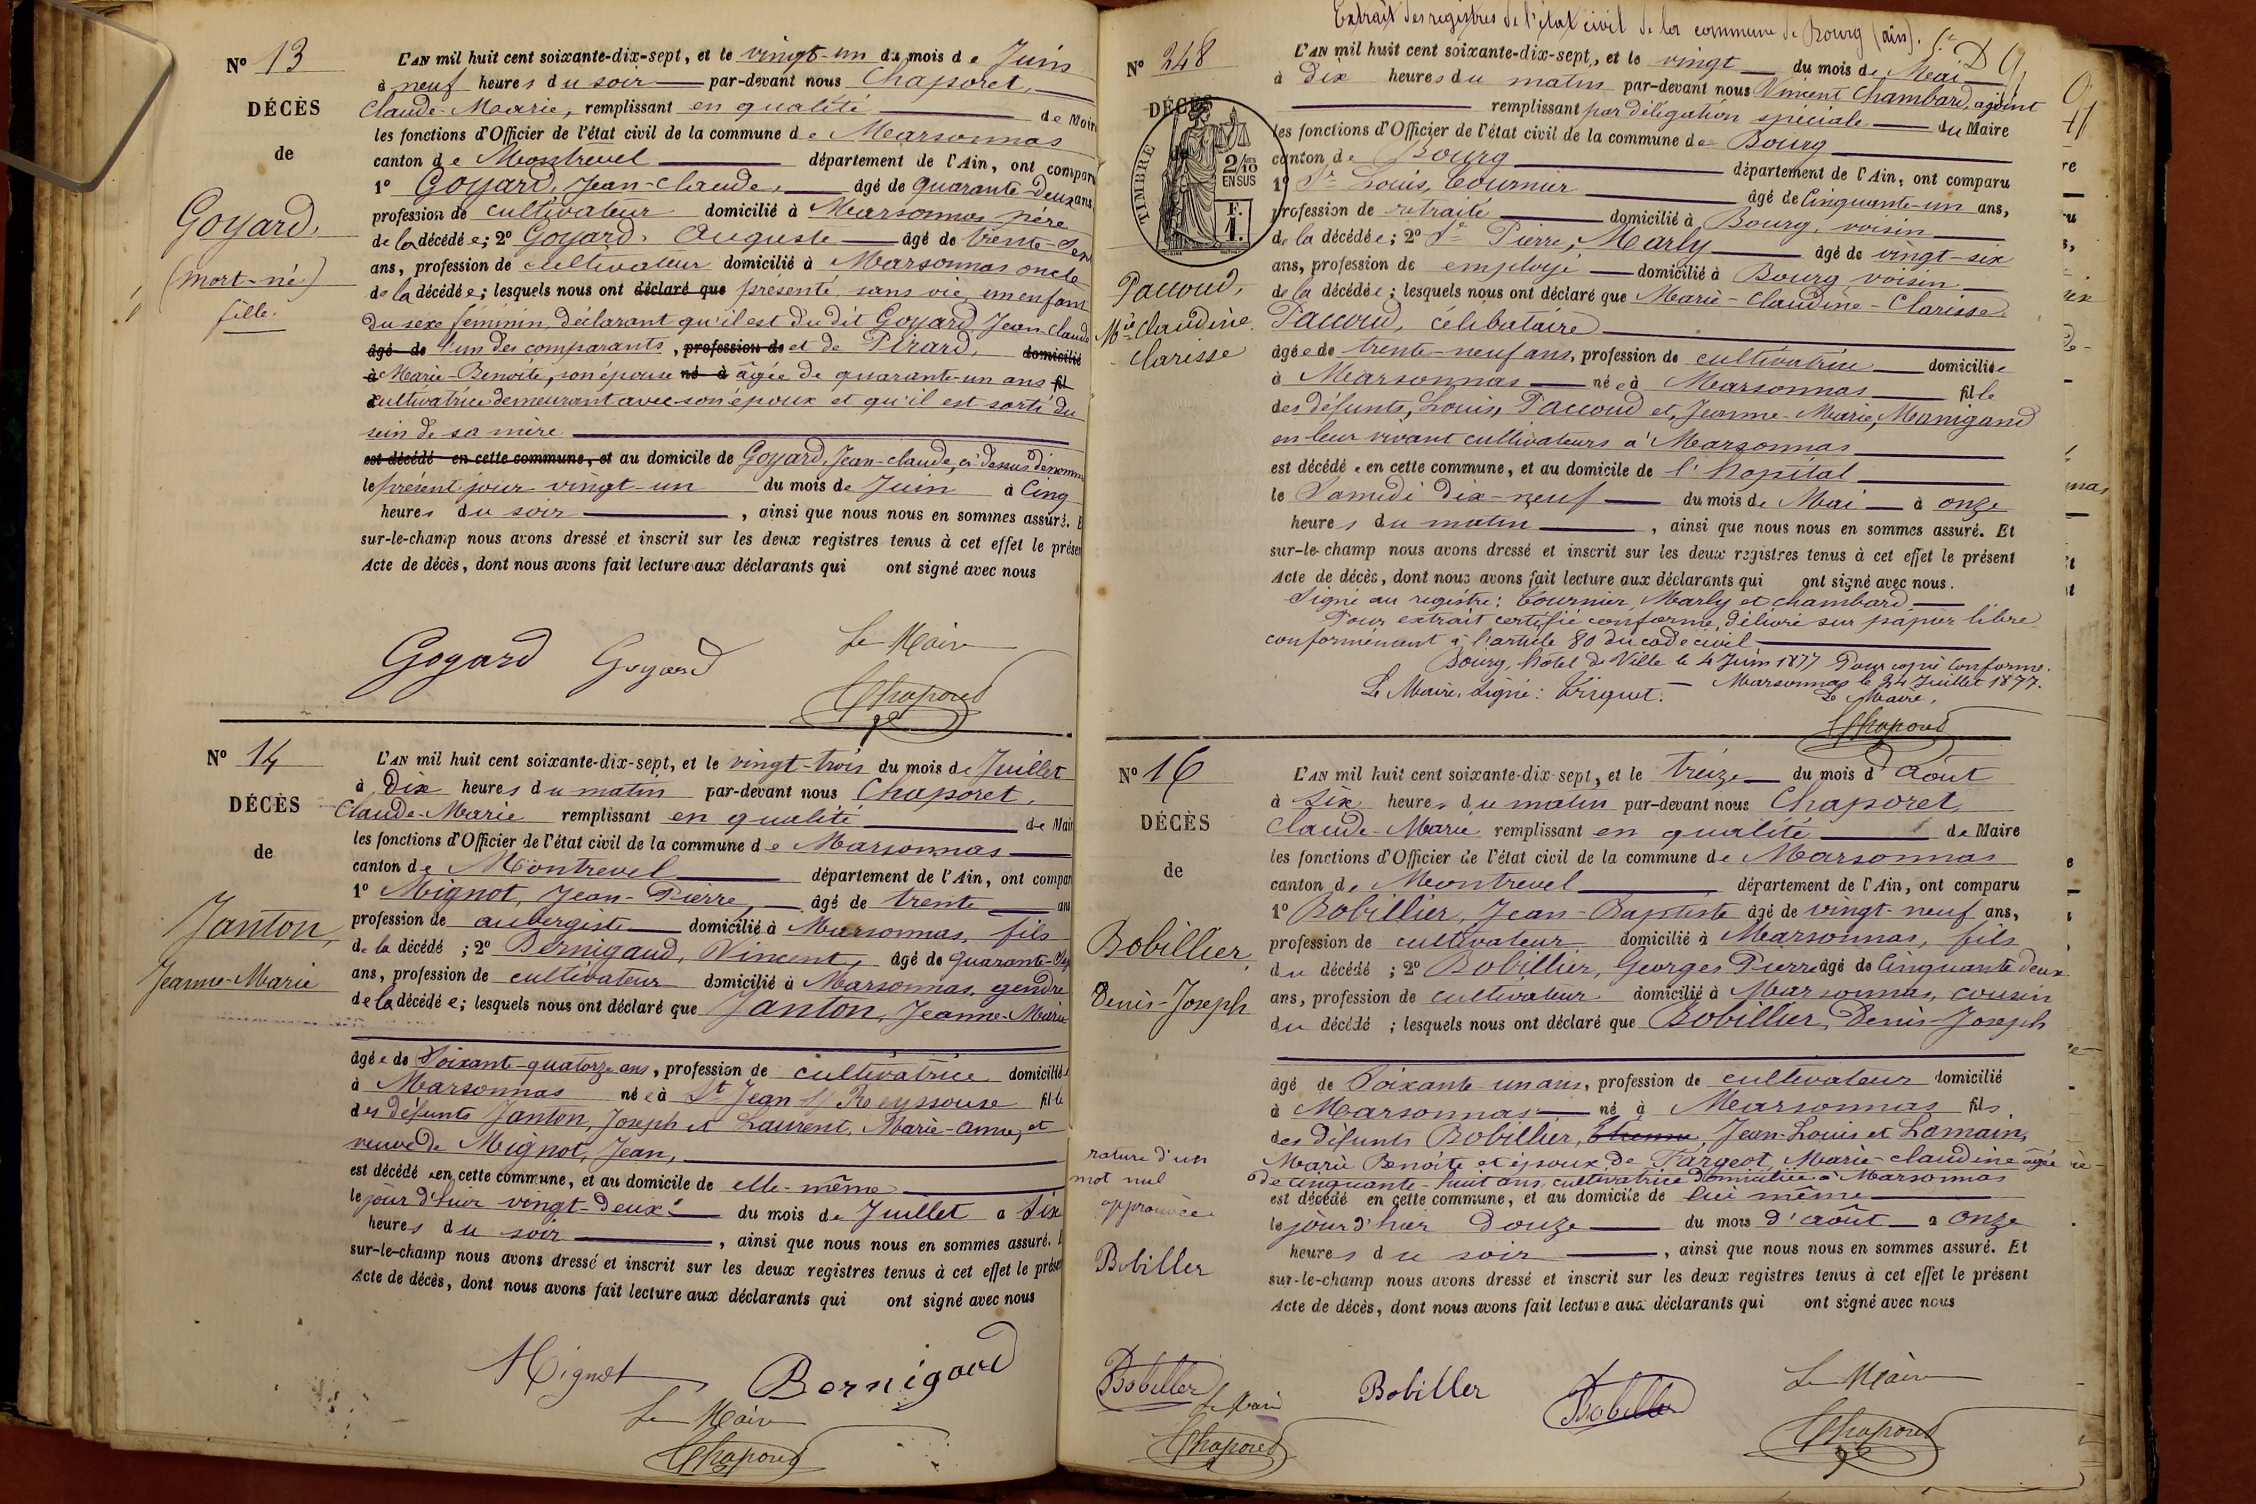 Nº 13
DÉCÈS
de
Goyard,
(mort-né)
fille.
L'AN mil huit cent soixante-dix-sept, et le vingt-un du mois de Juin
à neuf heures du soir par-devant nous Chaporet,
Claude-Marie, remplissant en qualité de Maire
les fonctions d'Officier de l'état civil de la commune de Marsonnas
canton de Montrevel département de l'Ain, ont compar
1º Goyard, Jean-Claude, âgé de quarante-deux ans,
profession de cultivateur domicilié à Marsonnas père
de la décédée; 2º Goyard, Auguste âgé de trente-sept
ans, profession de cultivateur domicilié à Marsonnas oncle
de la décédée; lesquels nous ont déclaré que présenté sans vie un enfant
du sexe féminin, déclarant qu'il est du dit Goyard Jean-Claude
âgé de l'un des comparants, profession de et de Pirard, domicilié
à Marie-Benoite, son épouse né à âgée de quarante-un ans fil
cultivatrice demeurant avec son époux et qu'il est sorti du
sein de sa mère
est décédé en cette commune, et au domicile de Goyard, Jean-Claude, ci-dessus dénommé
le présent jour vingt-un du mois de Juin à Cinq
heures du soir, ainsi que nous nous en sommes assuré. E
sur-le-champ nous avons dressé et inscrit sur les deux registres tenus à cet effet le présen
Acte de décès, dont nous avons fait lecture aux déclarants qui ont signé avec nous
Goyard Goyard Le Maire
Chaporet
Nº 14
DÉCÈS
de
Janton,
Jeanne-Marie
L'AN mil huit cent soixante-dix-sept, et le vingt-trois du mois de Juillet
à Dix heures du matin par-devant nous Chaporet,
Claude-Marie remplissant en qualité de Mair
les fonctions d'Officier de l'état civil de la commune de Marsonnas
canton de Montrevel département de l'Ain, ont compar
1º Mignot, Jean-Pierre, âgé de trente ans
profession de aubergiste domicilié à Marsonnas, fils
de la décédé ; 2º Bernigaud, Vincent, âgé de quarante-
ans, profession de cultivateur domicilié à Marsonnas, gendre
de la décédée; lesquels nous ont déclaré que Janton, Jeanne-Marie
âgée de Soixante-quatorze ans, profession de cultivatrice domiciliée
à Marsonnas née à St Jean s/ Reyssouse fille
des défunts Janton, Joseph et Laurent, Marie-Anne, et
veuve de Mignot, Jean,
est décédée en cette commune, et au domicile de elle-même
le jour d'hier vingt-deux du mois de Juillet à Six
heures du soir, ainsi que nous nous en sommes assuré. E
sur-le-champ nous avons dressé et inscrit sur les deux registres tenus à cet effet le prése
Acte de décès, dont nous avons fait lecture aux déclarants qui ont signé avec nous
Mignot Bernigaud
Le Maire
Chaporet
Extrait des registres de l'état civil de la commune de Bourg (ain).
Nº 248
DÉCÈS
TIMBRE
2/10
EN SUS
F.
1.
Paccoud,
Mie Claudine
Clarisse
L'AN mil huit cent soixante-dix-sept, et le vingt du mois de Mai
à dix heures du matin par-devant nous Vincent Chambard, adjoint
remplissant par délégation spéciale du Maire
les fonctions d'Officier de l'état civil de la commune de Bourg
canton de Bourg département de l'Ain, ont comparu
1º Sr Louis, Cournier âgé de Cinquante-un ans,
profession de retraité domicilié à Bourg, voisin
de la décédée; 2º Sr Pierre, Marly âgé de vingt-six
ans, profession de employé domicilié à Bourg voisin
de la décédée; lesquels nous ont déclaré que Marie-Claudine-Clarisse
Paccoud, célibataire
âgée de trente-neuf ans, profession de cultivatrice domiciliée
à Marsonnas née à Marsonnas fille
des défunts, Louis, Paccoud et, Jeanne-Marie, Manigand
en leur vivant cultivateurs à Marsonnas
est décédée en cette commune, et au domicile de l'hopital
le Samedi dix-neuf du mois de Mai à onze
heures du matin, ainsi que nous nous en sommes assuré. Et
sur-le-champ nous avons dressé et inscrit sur les deux registres tenus à cet effet le présent
Acte de décès, dont nous avons fait lecture aux déclarants qui ont signé avec nous.
Signé au registre: Cournier, Marly et Chambard
Pour extrait certifié conforme, délivré sur papier libre
conformément à l'article 80 du code civil
Bourg, hôtel de Ville le 4 Juin 1877 Pour copie Conforme.
Le Maire, signé: Marsonnas le 24 Juillet 1877.
Le Maire,
Chaporet
Nº 16
DÉCÈS
de
Bobillier,
Denis-Joseph
L'AN mil huit cent soixante-dix-sept, et le treize du mois d'Août
à six heures du matin par-devant nous Chaporet,
Claude-Marie remplissant en qualité de Maire
les fonctions d'Officier de l'état civil de la commune de Marsonnas
canton de Montrevel département de l'Ain, ont comparu
1º Bobillier, Jean-Baptiste âgé de vingt-neuf ans,
profession de cultivateur domicilié à Marsonnas, fils
du décédé ; 2º Bobillier, Georges Pierre âgé de Cinquante deux
ans, profession de cultivateur domicilié à Marsonnas, cousin
du décédé ; lesquels nous ont déclaré que Bobillier, Denis-Joseph
âgé de Soixante-un ans, profession de cultivateur domicilié
à Marsonnas né à Marsonnas fils
des défunts Bobillier, Etienne, Jean-Louis et Lamain,
Marie Benoite et époux de Fargeot, Marie-Claudine âgée
de cinquante-huit ans, cultivatrice domiciliée à Marsonnas
est décédé en cette commune, et au domicile de lui même
le jour d'hier Douze du mois d'août à onze
heures du soir, ainsi que nous nous en sommes assuré. Et
sur-le-champ nous avons dressé et inscrit sur les deux registres tenus à cet effet le présent
Acte de décès, dont nous avons fait lecture aux déclarants qui ont signé avec nous
rature d'un
mot nul
approuvée
Bobiller
Bobiller
Le Maire
Chaporet
Bobiller Bobiller Le Maire
Chaporet